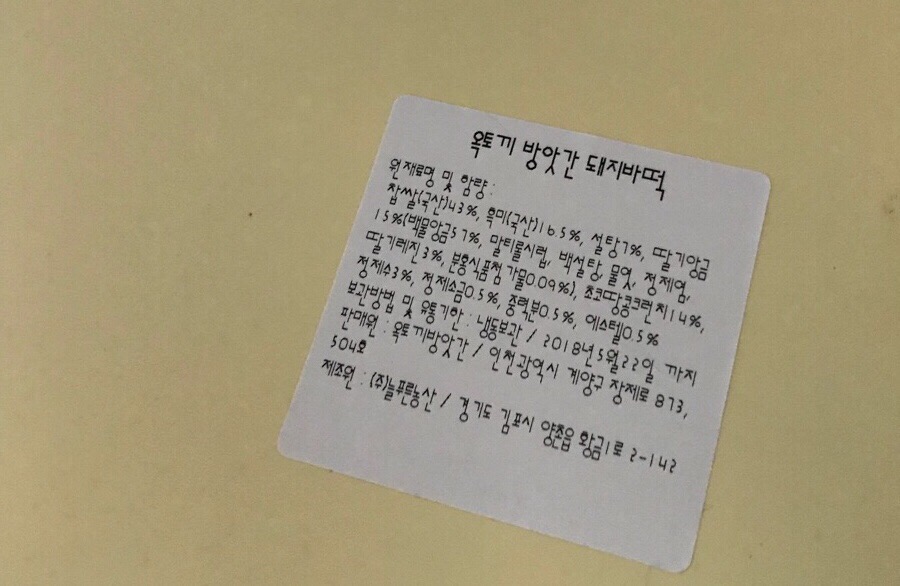 옥토끼 방앗간 돼지바떡
원재료명 및 함량 :
찹쌀(국산)43%, 흑미(국산)16.5%, 설탕7%, 딸기앙금
15%(백물앙금57%, 말티톨시럽, 백설탕, 물엿, 정제염,
딸기레진3%, 분홍식품첨가물0.09%), 초코땅콩크런치14%,
정제수3%, 정제소금0.5%, 중력분0.5%, 에스텔0.5%
보관방법 및 유통기한 : 냉동보관 / 2018년5월22일 까지
판매원 : 옥토끼방앗간 / 인천광역시 계양구 장제로 873,
504호
제조원 : (주)늘푸른농산 / 경기도 김포시 양촌읍 황금1로 2-142